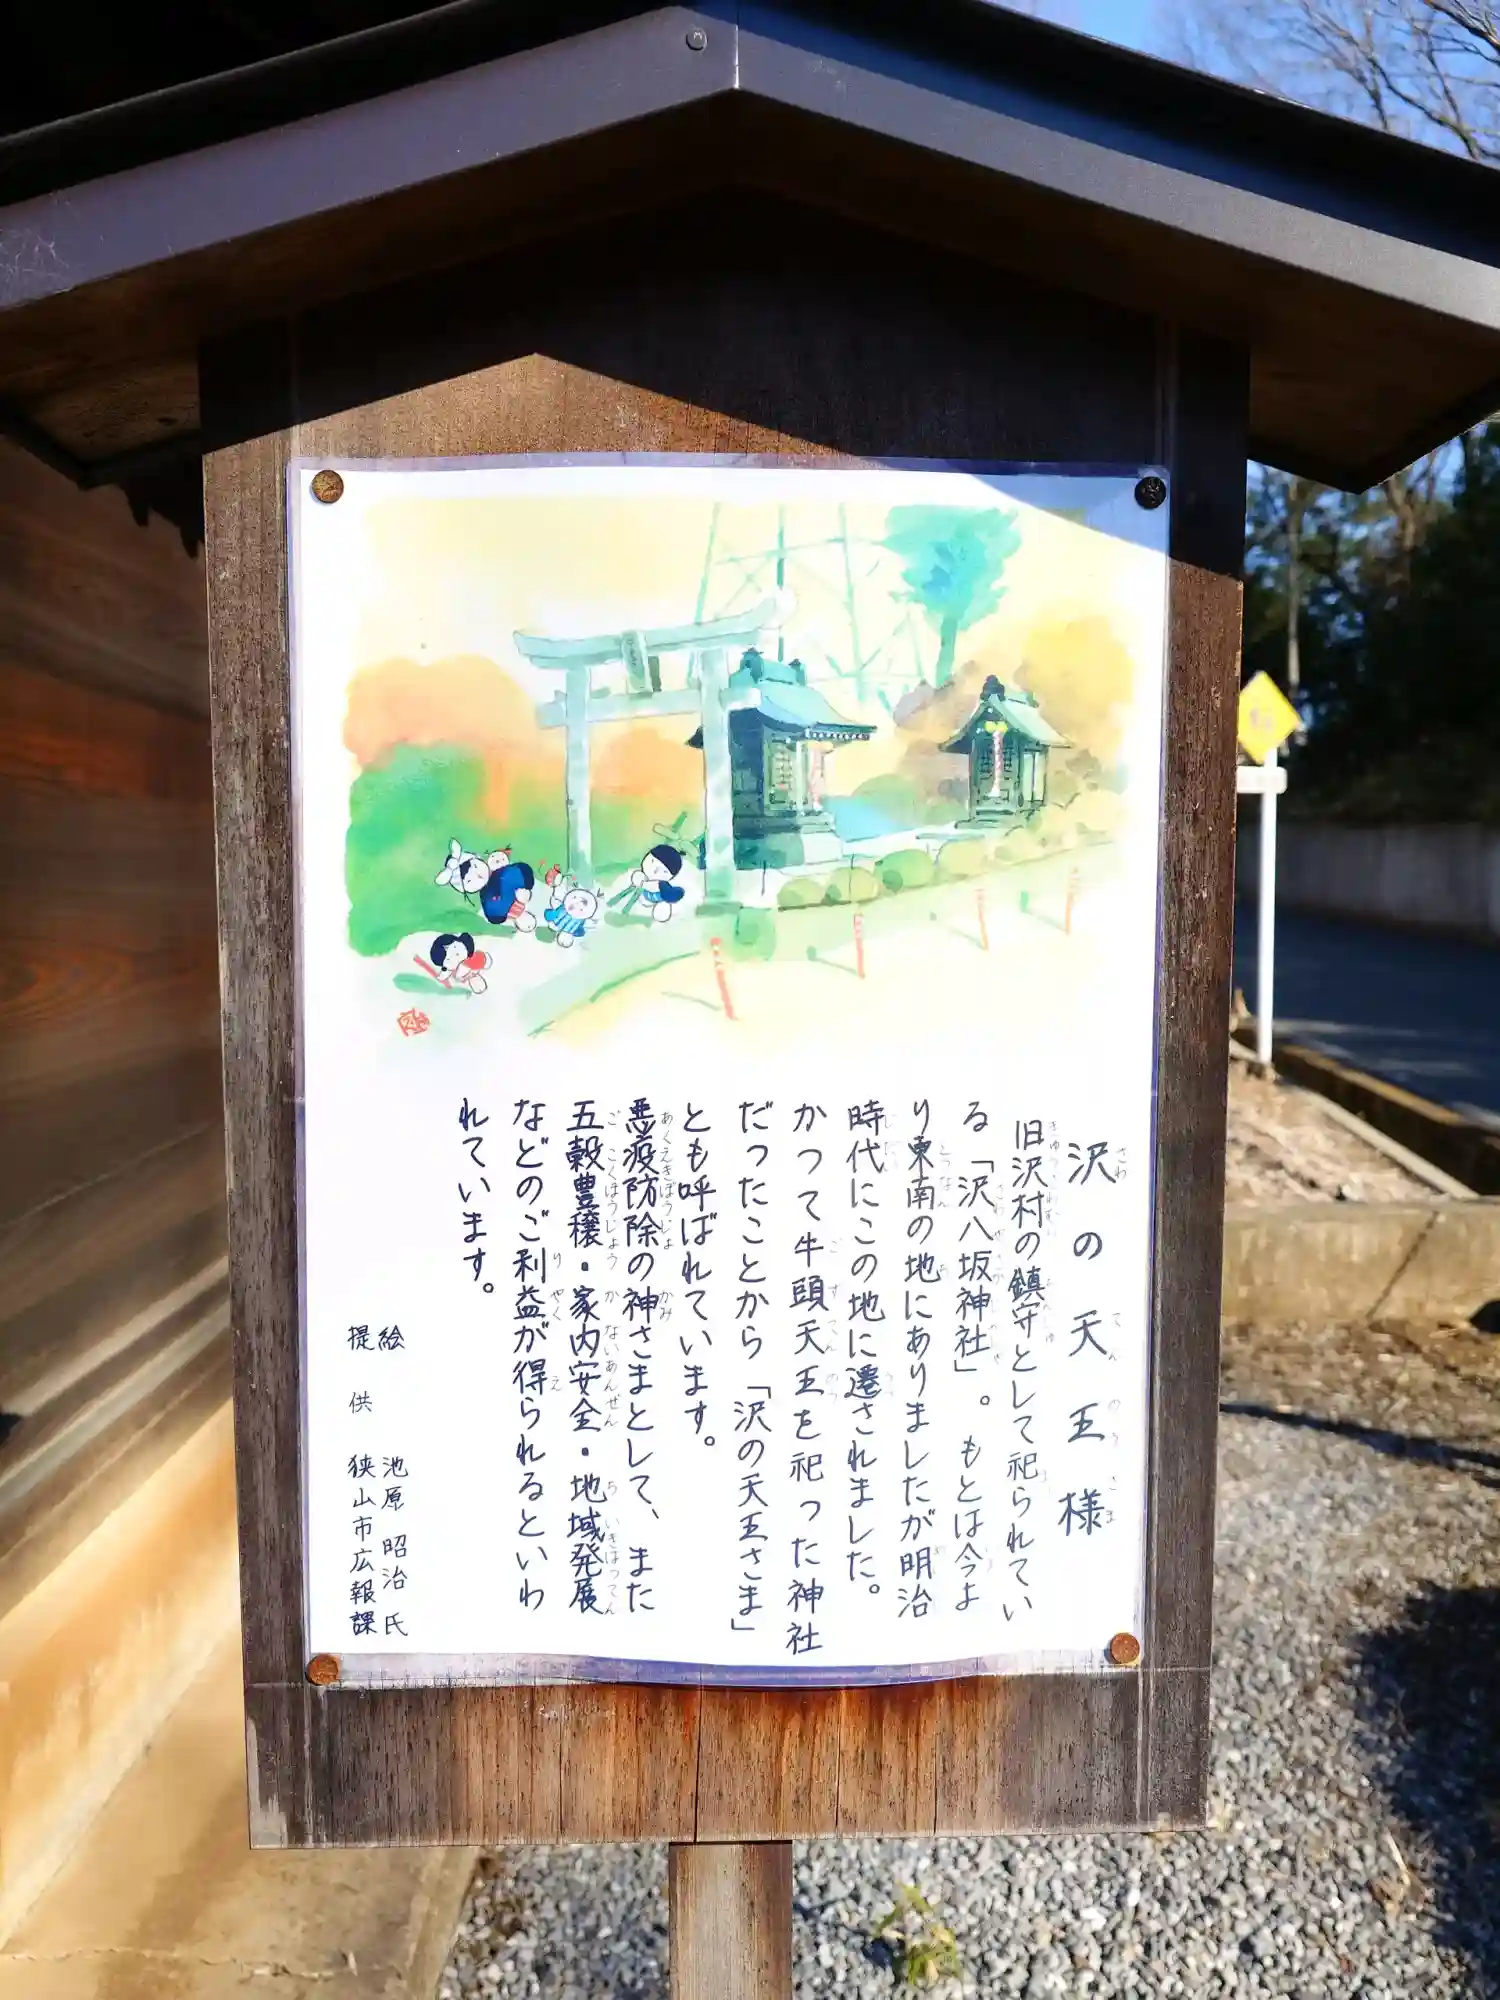 沢の天王様
旧沢村の鎮守として祀られてい
る「沢八坂神社」。もとは今よ
り東南の地にありましたが明治
時代にこの地に遷されました。
かつて牛頭天王を祀った神社
だったことから「沢の天王さま」
とも呼ばれています。
悪疫防除の神さまとして、また
五穀豊穣・家内安全・地域発展
などのご利益が得られるといわ
れています。
絵　池原昭治氏
提供　狭山市広報課